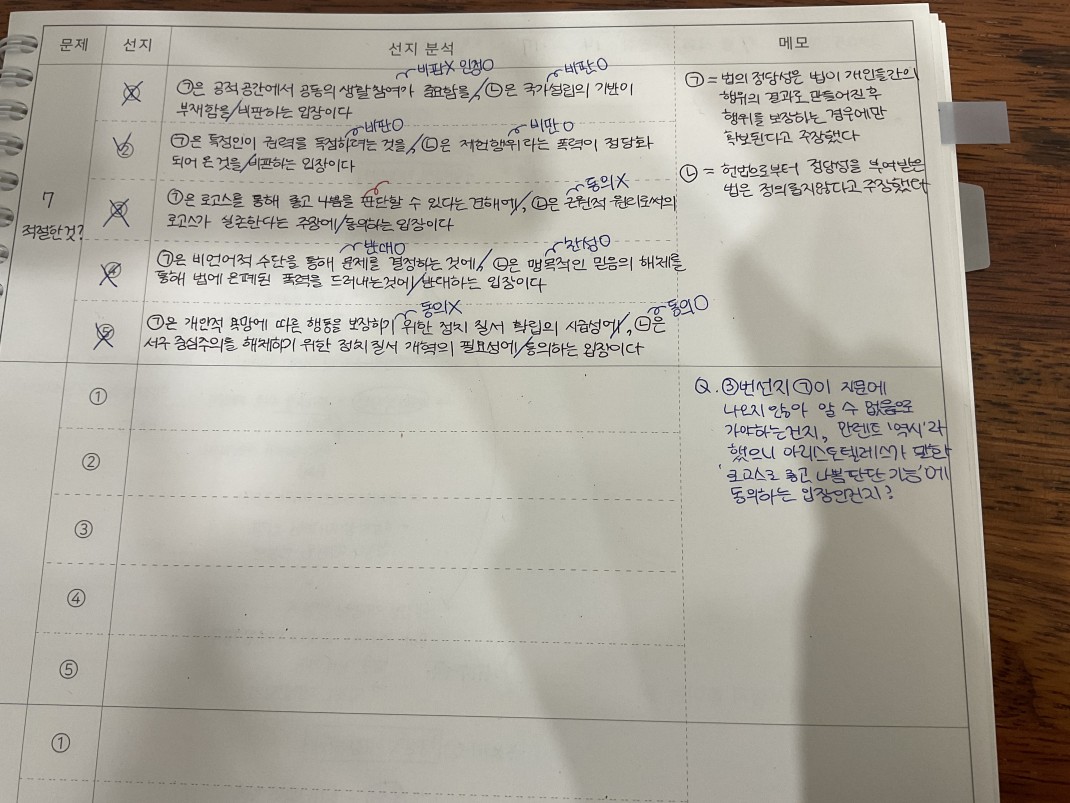 문제 선지 선지 분석 메모
7
적절한것?
①
비판X 인정O 비판O
㉠은 공적공간에서 공동의 생활 참여가 중요함을, ㉡은 국가설립의 기반이
부재함을/비판하는 입장이다
②
비판O 비판O
㉠은 특정인이 권력을 독점하려는 것을, ㉡은 제헌행위라는 폭력이 정당화
되어 온 것을/비판하는 입장이다
③
동의X
㉠은 로고스를 통해 좋고 나쁨을 판단할 수 있다는 견해에, ㉡은 근원적 원리로써의
로고스가 실존한다는 주장에/동의하는 입장이다
④
반대O 찬성O
㉠은 비언어적 수단을 통해 문제를 결정하는 것에, ㉡은 맹목적인 믿음의 해체를
통해 법에 은폐된 폭력을 드러내는것에/반대하는 입장이다
⑤
동의X 동의O
㉠은 개인적 욕망에 따른 행동을 보장하기 위한 정치 질서 확립의 시급성에, ㉡은
서구 중심주의를 해체하기 위한 정치 질서 개혁의 필요성에/동의하는 입장이다
㉠ = 법의 정당성은 법이 개인들간의
행위의 결과로 만들어진 후
행위를 보장하는 경우에만
확보된다고 주장했다
㉡ = 헌법으로부터 정당성을 부여받은
법은 정의롭지않다고 주장했다
①
②
③
④
⑤
Q. ③번선지 ㉠이 지문에
나오지 않아 알 수 없음으로
가야하는건지, 아렌트 '역시'라
했으니 아리스토텔레스가 말한
'로고스로 좋고 나쁨 판단 기능'에
동의하는 입장인건지?
①